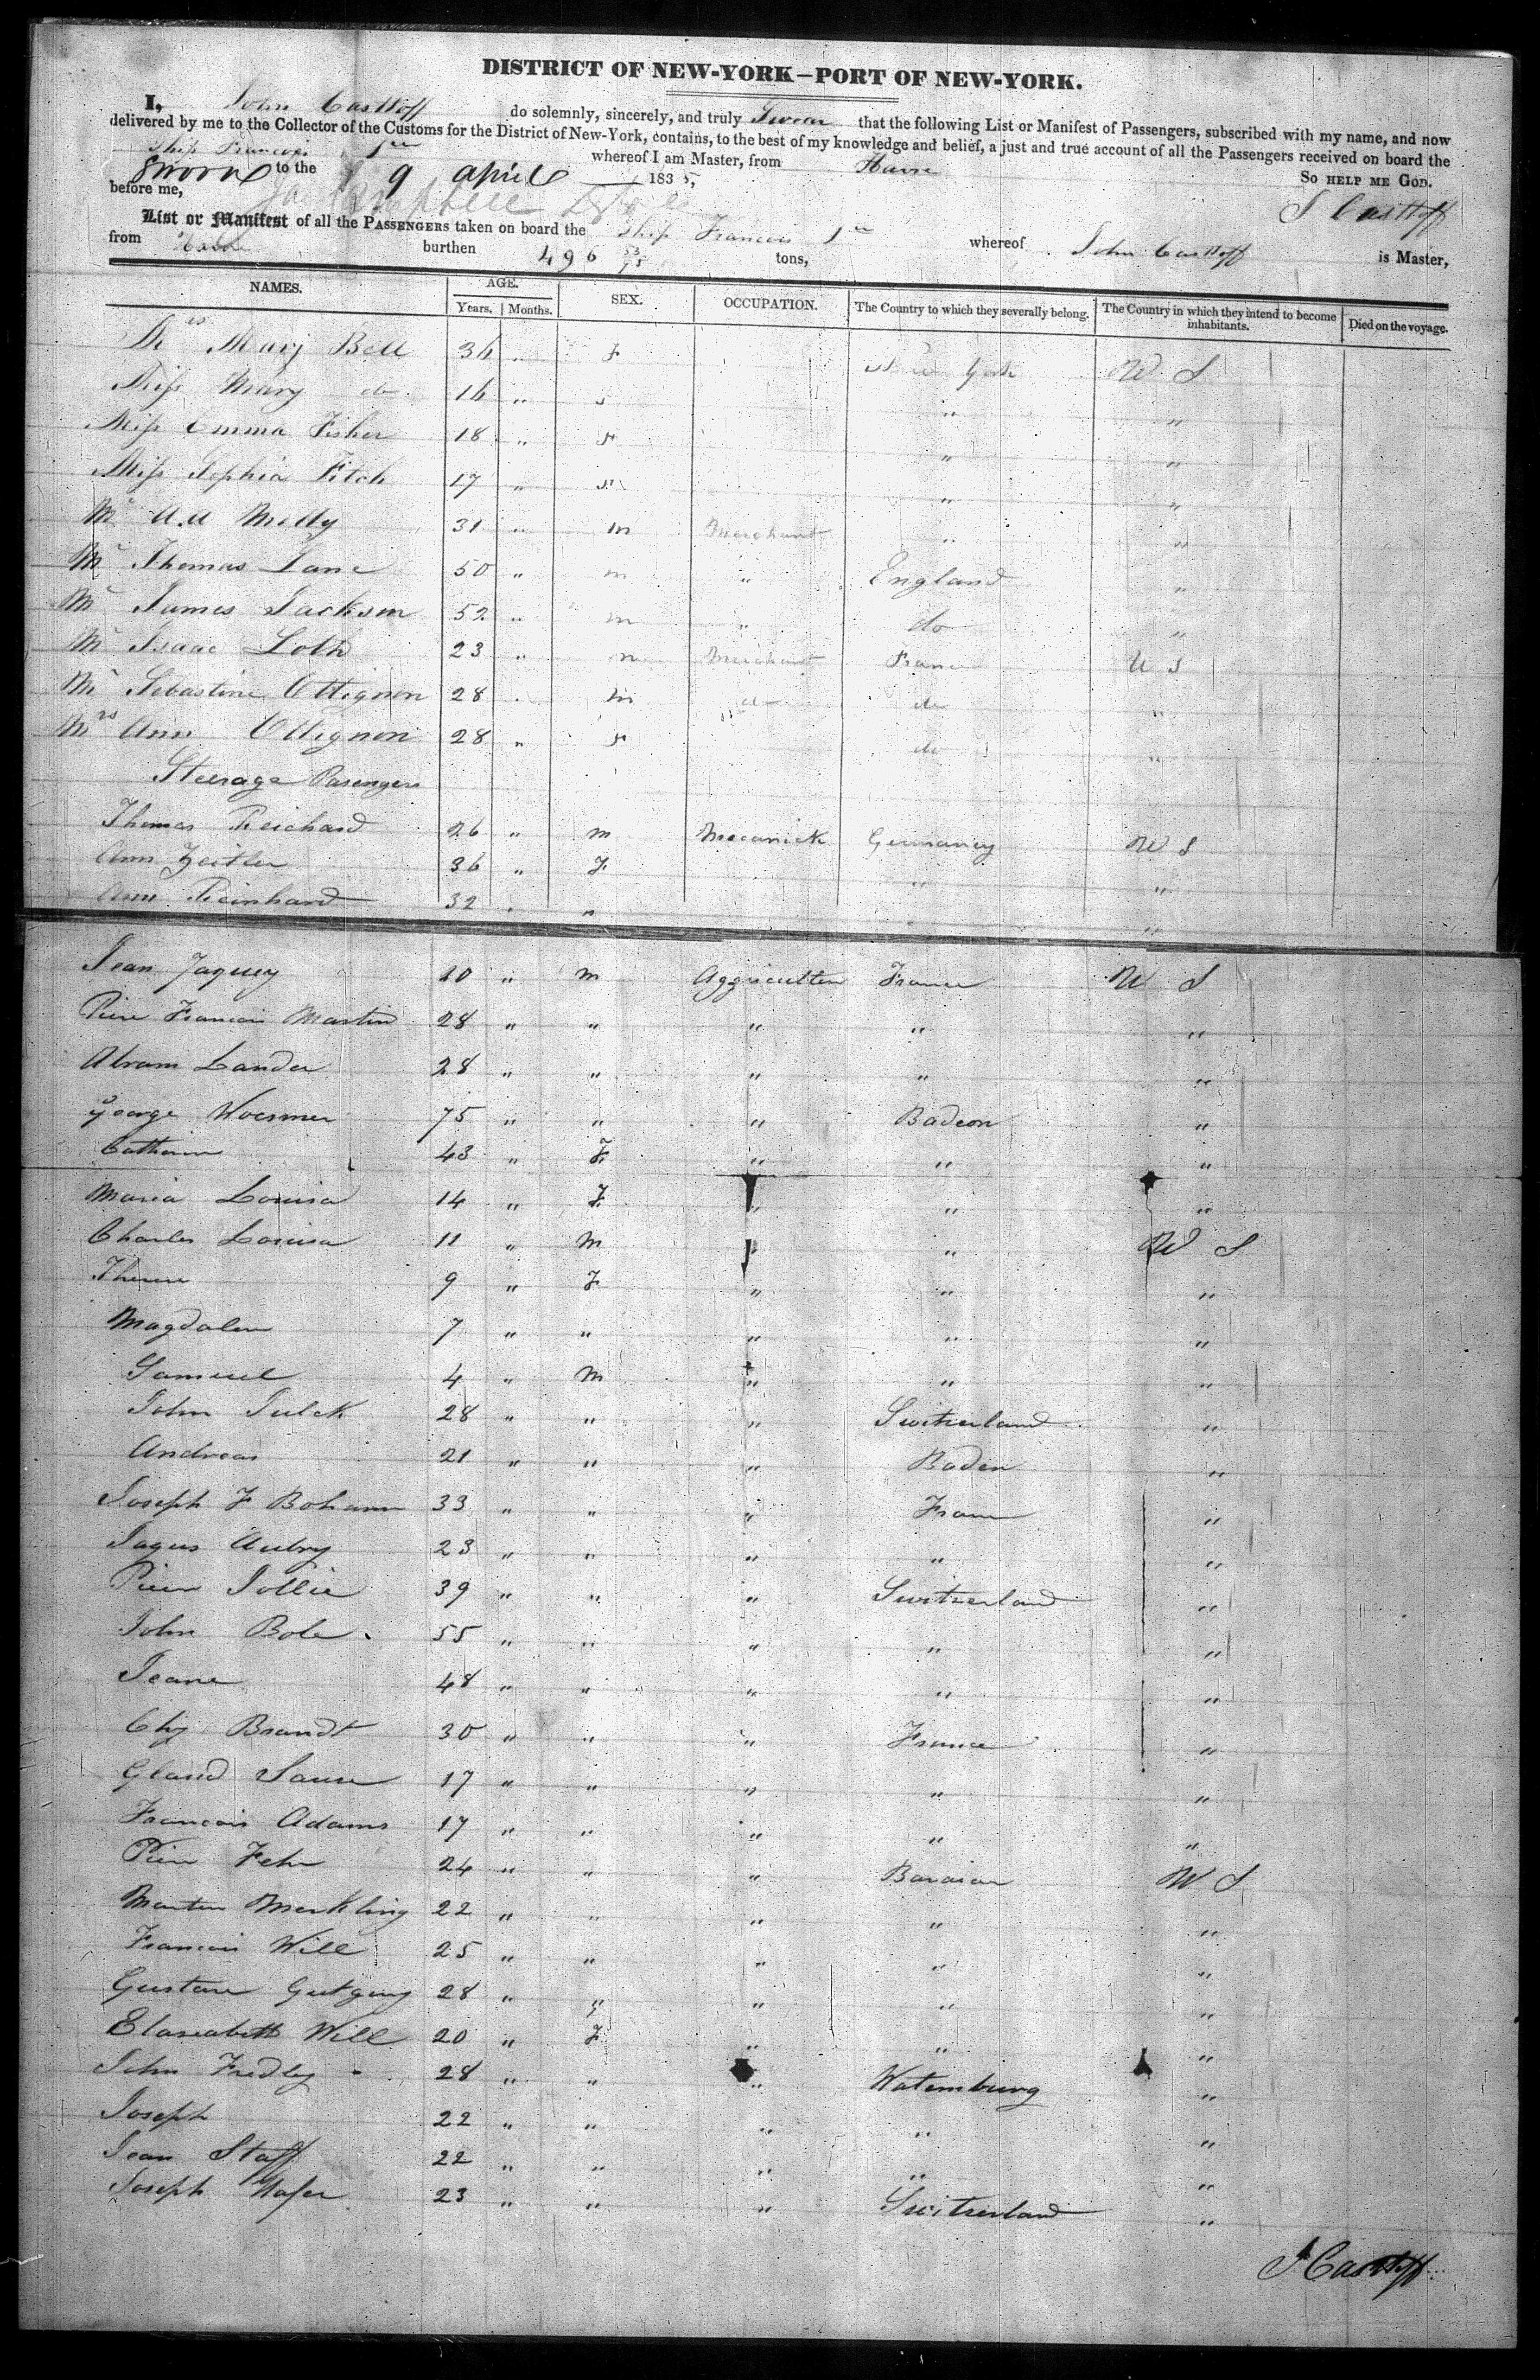 DISTRICT OF NEW-YORK—PORT OF NEW-YORK.
I, John Casttoff do solemnly, sincerely, and truly Swear that the following List or Manifest of Passengers, subscribed with my name, and now
delivered by me to the Collector of the Customs for the District of New-York, contains, to the best of my knowledge and belief, a just and true account of all the Passengers received on board the
Ship Francois 1er whereof I am Master, from Havre
Sworn to the 9 April 1835, So HELP ME GOD.
before me, J Casttoff
List or Manifest of all the PASSENGERS taken on board the Ship Francois 1er whereof John Casttoff is Master,
from Havre burthen 496 53/95 tons,
NAMES. AGE. Years. Months. SEX. OCCUPATION. The Country to which they severally belong. The Country in which they intend to become inhabitants. Died on the voyage.
Mrs Mary Bell 36 " F New York U S
Miss Mary do 16 " " "
Miss Emma Fisher 18 " F " "
Miss Sophia Fitch 17 " " "
Mr 31 " m Merchant " "
Mr Thomas Lane 50 " m " England "
Mr James Jackson 52 " m " do "
Mr Isaac Loth 23 " m Merchant France U S
Mr Sebastine Ottignon 28 " m do do "
Mrs Ann Ottignon 28 " F do "
Steerage Pasengers
Thomas Reichard 26 " m Mecanick Germany U S
Ann Zeitler 36 " F " "
Ann Reinhard 32 " " " "
Jean Jaquey 10 " m Aggriculter France U S
Piere Francois Martin 28 " " " " "
Abram Lander 28 " " " " "
George Woesmer 75 " " " Badeon "
Catherin 43 " F " " "
Maria Louisa 14 " F " " "
Charles Louisa 11 " M " " U S
Therese 9 " F " " "
Magdalen 7 " " " " "
Samuel 4 " M " " "
John Julck 28 " " " Switzerland "
Andreas 21 " " " Baden "
Joseph F Bohann 33 " " " Franc "
Jaques Aubry 23 " " " " "
Pierr Jollie 39 " " " Switzerland "
John Bole 55 " " " " "
Jeane 48 " " " " "
Brandt 30 " " " France "
Gland 17 " " " " "
Francois Adams 17 " " " " "
Pierr Fehr 24 " " " Bavaian U S
Martin Merkling 22 " " " " "
Francois Will 25 " " " " "
Gustave 28 " " " " "
Elaseabetth Will 20 " F " " "
John Fredley 28 " " " Watemburg "
Joseph 22 " " " " "
Jean Staff 22 " " " " "
Joseph Hafer 23 " " " Switzerland "
J Casttoff